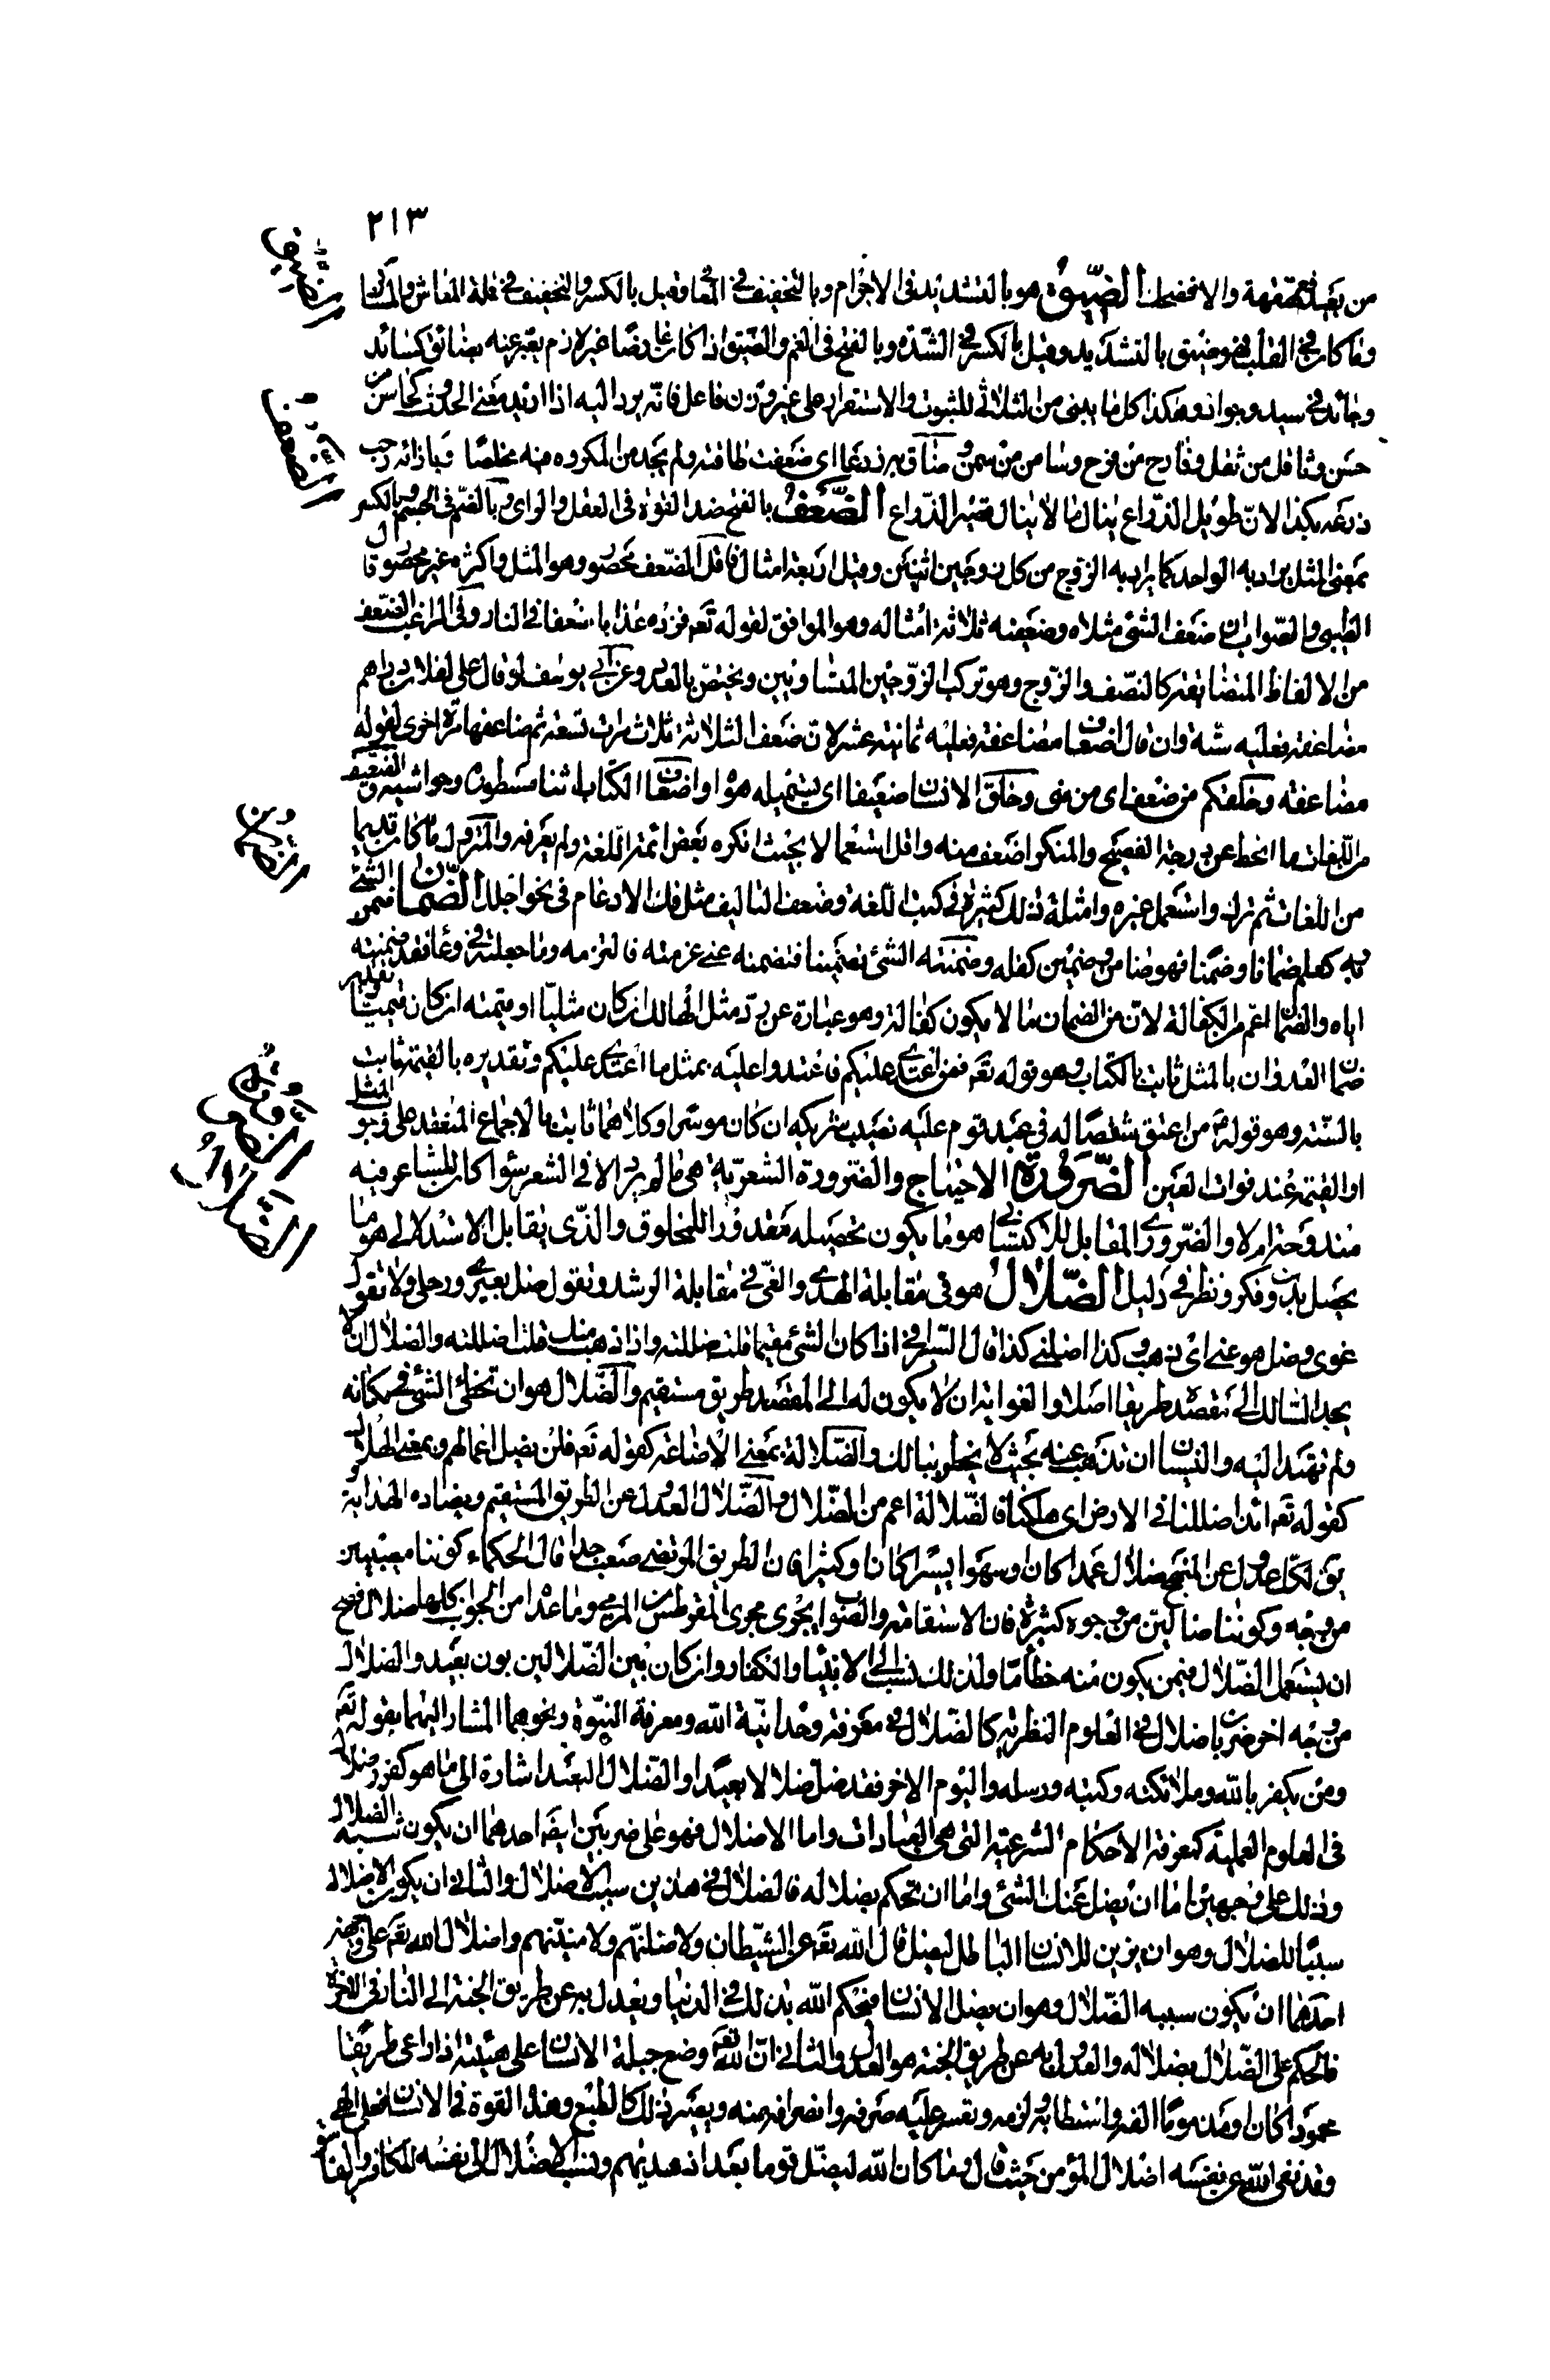 ٢١٣
الضيق
من بعد قهقهة والا فضحك الضّيق هو بالتشديد في الاجرام وبالتخفيف في المعاني وقيل بالكسر والتخفيف في قلة المعاش والمساكن
وما كان في القلب فهو ضيق بالتشديد وقيل بالكسر في الشدة وبالفتح في الغم والضيق اذا كان عارضا غير لازم يعبر عنه بضائق كسائد
وجائد في سيد وجواد وهكذا كل ما يبنى من الثلاثي للثبوت والاستقرار على غير وزن فاعل فانه يرد اليه اذا اريد معنى الحدوث كحاسن من
الضعف
حسن وثاقل من ثقل وفارح من فرح وسامن من سمن وضاق به ذرعا اي ضعفت طاقته ولم يجد من المكروه فيه مخلصا وبازائه رحب
ذرعه بكذا لان طويل الذراع ينال ما لا ينال قصير الذراع الضّعف بالفتح ضد القوة في العقل والراي وبالضم في الجسم وبالكسر
بمعنى المثل يراد به الواحد كما يراد به الزوج من كل زوجين اثنين وقيل اربعة امثال فاقل الضعف محصور وهو المثل واكثره غير محصور قال
الطيبي والصواب ان ضعف الشئ مثلاه وضعفيه ثلاثة امثاله وهو الموافق لقوله تعه فزده عذابا ضعفا في النار وفي الراغب الضعف
من الالفاظ المتضايفة كالنصف والزوج وهو تركب الزوجين المتساويين ويختص بالعدد وعن ابي يوسف لو قال علي لفلان دراهم
مضاعفة فعليه ستة وان قال اضعاف مضاعفة فعليه ثمانية عشر لان ضعف الثلاثة ثلاث مرات تسعة ثم ضاعفها مرة اخرى لقوله
مضاعفة وخلقكم من ضعف اي من منى وخلق الانسان ضعيفا اي يستميله هواه واضعاف الكتاب اثناء سطوره وحواشيه والضعيف
من اللغات ما انحط عن درجة الفصيح والمنكر اضعف منه واقل استعمالا بحيث انكره بعض ائمة اللغة ولم يعرفه والمتروك ما كان قديما
الضمان
من اللغات ثم ترك واستعمل غيره وامثلة ذلك كثيرة في كتب اللغة وضعف التاليف مثل فك الادغام في نحو اجلل الضّمان ضمن الشئ
به كعلم ضمانا وضمنا فهو ضامن وضمين كفله وضمنته الشئ تضمينا فتضمنه عني غرمته فالتزمه وما جعلته في وعاء فقد ضمنته
اياه والضمان اعم من الكفالة لان من الضمان ما لا يكون كفالة وهو عبارة عن رد مثل الهالك ان كان مثليا او قيمته ان كان قيميا
ضمان العدوان بالمثل ثابت بالكتاب وهو قوله تعه فمن اعتدى عليكم فاعتدوا عليه بمثل ما اعتدى عليكم وتقديره بالقيمة ثابت
الضرورة
بالسنة وهو قوله من اعتق شقصا له في عبد قوم عليه نصيب شريكه ان كان موسرا وكلاهما ثابت بالاجماع المنعقد على وجوب المثل
او القيمة عند فوات العين الضّرورة الاحتياج والضرورة الشعرية هي ما لم يرد الا في الشعر سواء كان للشاعر فيه
مندوحة ام لا والضروري المقابل للاكتسابي هو ما يكون تحصيله مقدورا للمخلوق والذي يقابل الاستدلالي هو ما
الضلال
يحصل بدون فكر ونظر في دليل الضّلال هو في مقابلة الهدى والغي في مقابلة الرشد وتقول ضل بعيري ورحلي ولا تقول
غوى وضل هو عني اي ذهب وكذا اضلني كذا قال الشئ مقيما قلت ضللته واذا ذهب منك قلت اضللته والضلال ان لا
يجد السالك الى مقصده طريقا اصلا والغواية ان لا يكون له الى المقصد طريق مستقيم والضلال هو ان تخطئ الشئ في مكانه
ولم تهتد اليه والنسيان ان تذهب عنه بحيث لا يخطر ببالك والضلالة بمعنى الاضاعة كقوله تعه فلن يضل اعمالهم وبمعنى الهلاك
كقوله تعه ائذا ضللنا في الارض اي هلكنا والضلالة اعم من الضلال والضلال العدول عن الطريق المستقيم ويضاده الهداية
يق لكل عدول عن المنهج ضلال عمدا كان او سهوا يسيرا كان او كثيرا فان الطريق المرتضى صعب جدا قال الحكماء كوننا مصيبين
من وجه وكوننا ضالين من وجوه كثيرة فان الاستقامة والصواب يجري مجرى المقرطس من المرمى وما عداه من الجوانب كلها ضلال فصح
ان يستعمل الضلال فيمن يكون منه خطأ ما ولذلك نسب الى الانبياء والكفار وان كان بين الضلالين بون بعيد والضلال
من وجه اخر ضربان ضلال في العلوم النظرية كالضلال في معرفة وحدانية الله ومعرفة النبوة ونحوهما المشار اليهما بقوله تعه
ومن يكفر بالله وملائكته وكتبه ورسله واليوم الاخر فقد ضل ضلالا بعيدا والضلال البعيد اشارة الى ما هو كفر وضلال
في العلوم العملية كمعرفة الاحكام الشرعية التي هي العبادات واما الاضلال فهو على ضربين ايضه احدهما ان يكون سببه الضلال
وذلك على وجهين اما ان يضل عنك الشئ واما ان تحكم بضلاله فالضلال في هذين سبب الاضلال والثاني ان يكون الاضلال
سببا للضلال وهو ان يزين للانسان الباطل ليضل قال الله تعه عن الشيطان ولاضلنهم ولامنينهم واضلال الله تعه على وجهين
احدهما ان يكون سببه الضلال وهو ان يضل الانسان فيحكم الله بذلك في الدنيا ويعدل به عن طريق الجنة الى النار في الاخرة
فالحكم على الضلال بضلاله والعدول به عن طريق الجنة هو العدل والثاني ان الله تعه وضع جبلة الانسان على هيئة اذا راعى طريقا
محمودا كان او مذموما الفه واستطابه ولزمه وتعسر عليه صرفه وانصرافه منه ويصير ذلك كالطبع وهذه القوة في الانسان فعل الهي
وقد نفى الله عن نفسه اضلال المؤمن حيث قال وما كان الله ليضل قوما بعد اذ هديهم ونسب الاضلال الى نفسه للكافر والفاسق